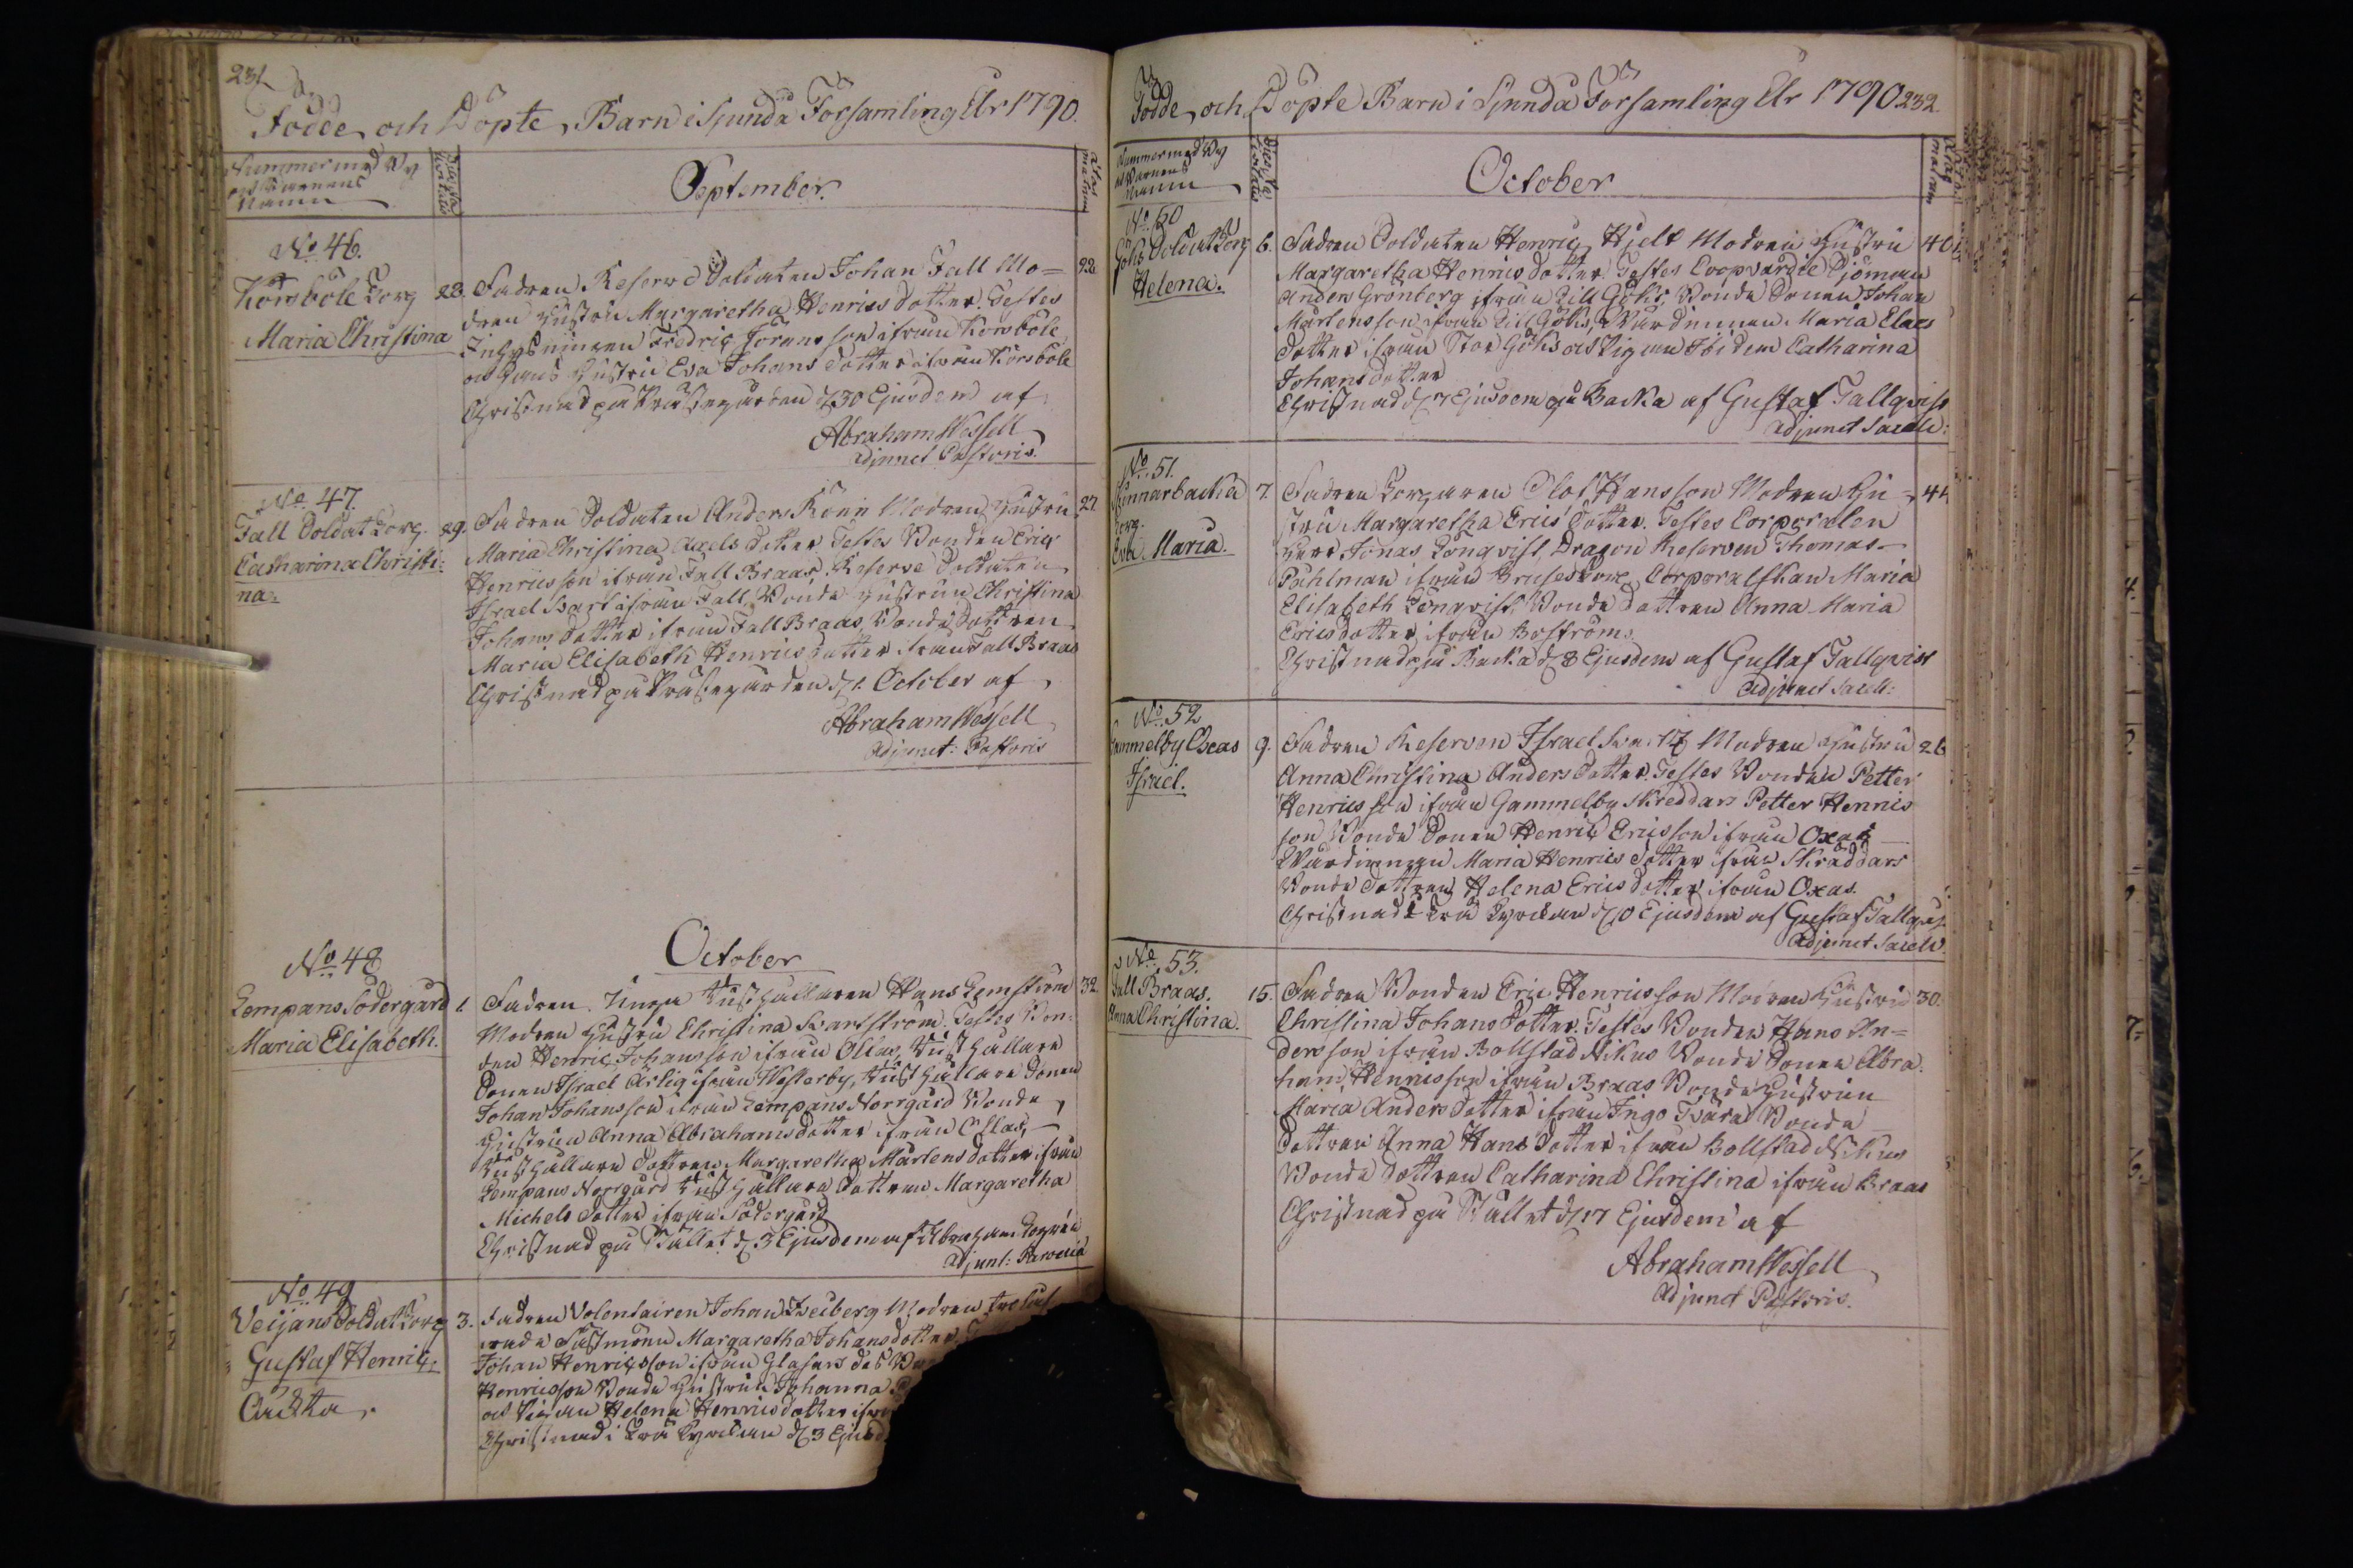 231
Födde och Döpte Barn i Sjunda Församling År 1790.
Nummer med By
och Barnens
Namn
September.
No 46.
Korsböle Torp
Maria Christina
28. Fadren Reserve Soldaten Johan Fall Mo= 22
dren Hustru Margaretha Henrics dotter Testes
Inhysningen Fredric Jöransson ifrån Korsböle
och hans Hustru Eva Johans dotter ifrån Korsböle
Christnad på Prästegården d 30 Ejusdem af
Abraham Wessell
Adjunct Pastoris.
No 47.
Fall Soldat Torp.
Catharina Christi=
na.
29. Fadren Soldaten Anders Rönn Modren Hustru 27
Maria Christina Axels dotter Testes Bonden Eric
Henricsson ifrån Fall Braas, Reserve Soldaten
Israel Svart ifrån Fall, Bonde Hustrun Christina
Johans dotter ifrån Fall Braas, Bonde Dottren
Maria Elisabeth Henrics dotter ifrån Fall Braas
Christnad på Prästegården d 1. October af
Abraham Wessell
Adjunct: Pastoris
October
No 48
Lempans Södergård
Maria Elisabeth.
1. Fadren Unga Rusthållaren Hans Lemström 32
Modren Hustru Christina Svartström. Testes Bon=
den Henric Johansson ifrån Ollas, Rusthållare
Sonen Israel Ärlig ifrån Westerby, Rusthållare Sonen
Johan Johansson ifrån Lempans Norrgård Bonde
Hustrun Anna Abrahams dotter ifrån Ollas,
Rusthållare Dottren Margaretha Mårtens dotter ifrån
Lempans Norrgård Rusthållare Dottren Margaretha
Michels dotter ifrån Södergård
Christnad på Stället d 3 Ejusdem af Abraham
Adjunt:
No 49
Veijans Soldat Torp
Gustaf Henric
3. Fadren Volontairen Johan Modren
Margaretha Johansdotter.
Johan Henricsson ifrån Glasars
Henricsson Bonde Hustrun Johanna
och Pigan Helena Henricsdotter
Christnad i Kyrkan d 3
Födde och Döpte Barn i Sjunda Församling År 1790 232.
Nummer med By
och Barnens
Namn
October
No 50
Göhs Soldat Torp
Helena.
6. Fadren Soldaten Henric Hjelt Modren Hustru 40
Margaretha Henrics dotter Testes Coopvardie Sjöman
Anders Grönberg ifrån Lill Göhs, Bonde Sonen Johan
Mårtensson ifrån Lill Göhs, Värdinnan Maria Claes
dotter ifrån Stor Göhs och Pigan Ibidem Catharina
Johans dotter
Christnad d 7 Ejusdem på Backa af Gustaf Tallqvist
Adjunct Sacell:
No 51.
Skinnarbacka
Torp.
Eva Maria.
7. Fadren Torparen Olof Hansson Modren Hu= 44
stru Margaretha Erics dotter. Testes Corporalen
Herr Jonas Lönqvist, Dragon Reserven Thomas
Påhlman ifrån Corporalskan Maria
Elisabeth Lönqvist, Bonde Dottren Anna Maria
Ericsdotter ifrån Boström.
Christnad på Backa d 8 Ejusdem af Gustaf Tallqvist
Adjunct Sacell:
No 52
Gammelby Oxas
Israel.
9. Fadren Reserven Israel Modren Hustru 26
Anna Christina Anders dotter. Testes Bonden Petter
Henricsson ifrån Gammelby Skreddars Petter Henrics
son Bonde Sonen Henric Ericsson ifrån Oxas
Värdinnan Maria Henrics dotter ifrån Skräddars
Bonde Dottren Helena Erics dotter ifrån Oxas.
Christnad i Kyrckan d 10 Ejusdem af Gustaf Tallqvist
Adjunct Sacell.
No 53.
Fall Braas.
Anna Christina.
15. Fadren Bonden Eric Henricsson Modren Hustru 30.
Christina Johans dotter. Testes Bonden Hans An=
dersson ifrån Bollstad Nikus Bonde Sonen Abra
ham Henricsson ifrån Braas Bonde Hustrun
Maria Anders dotter ifrån Ingo Tvära Bonde
dottren Anna Hans dotter ifrån Bollstad Nikus
Bonde dottren Catharina Christina ifrån Braas
Christnad på Stället d 17 Ejusdem af
Abraham Wessell
Adjunct Pastoris.